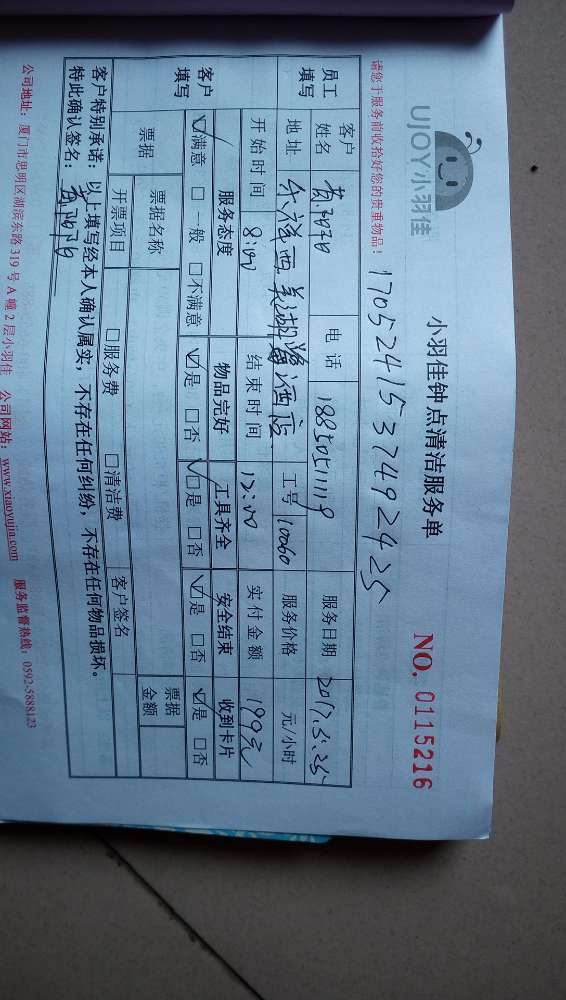 UJOY小羽佳
小羽佳钟点清洁服务单
NO. 0115216
请您于服务前收拾好您的贵重物品！
1705241537492425
员工填写
客户姓名 电话 18850511119 服务日期 2017.5.25
地址 乐雅西美湖酒店 工号 10060 服务价格 元/小时
开始时间 8:00 结束时间 12:00 实付金额 199元
客户填写
服务态度 物品完好 工具齐全 安全结束 收到卡片
☑满意 □一般 □不满意 ☑是 □否 ☑是 □否 ☑是 □否 ☑是 □否
票据 票据名称 票据金额
开票项目 □服务费 □清洁费 客户签名
客户特别承诺：以上填写经本人确认属实，不存在任何纠纷，不存在任何物品损坏。
特此确认签名：
公司地址：厦门市思明区湖滨东路319号A幢2层小羽佳 公司网站：www.xiaoyujia.com 服务监督热线：0592-5888123